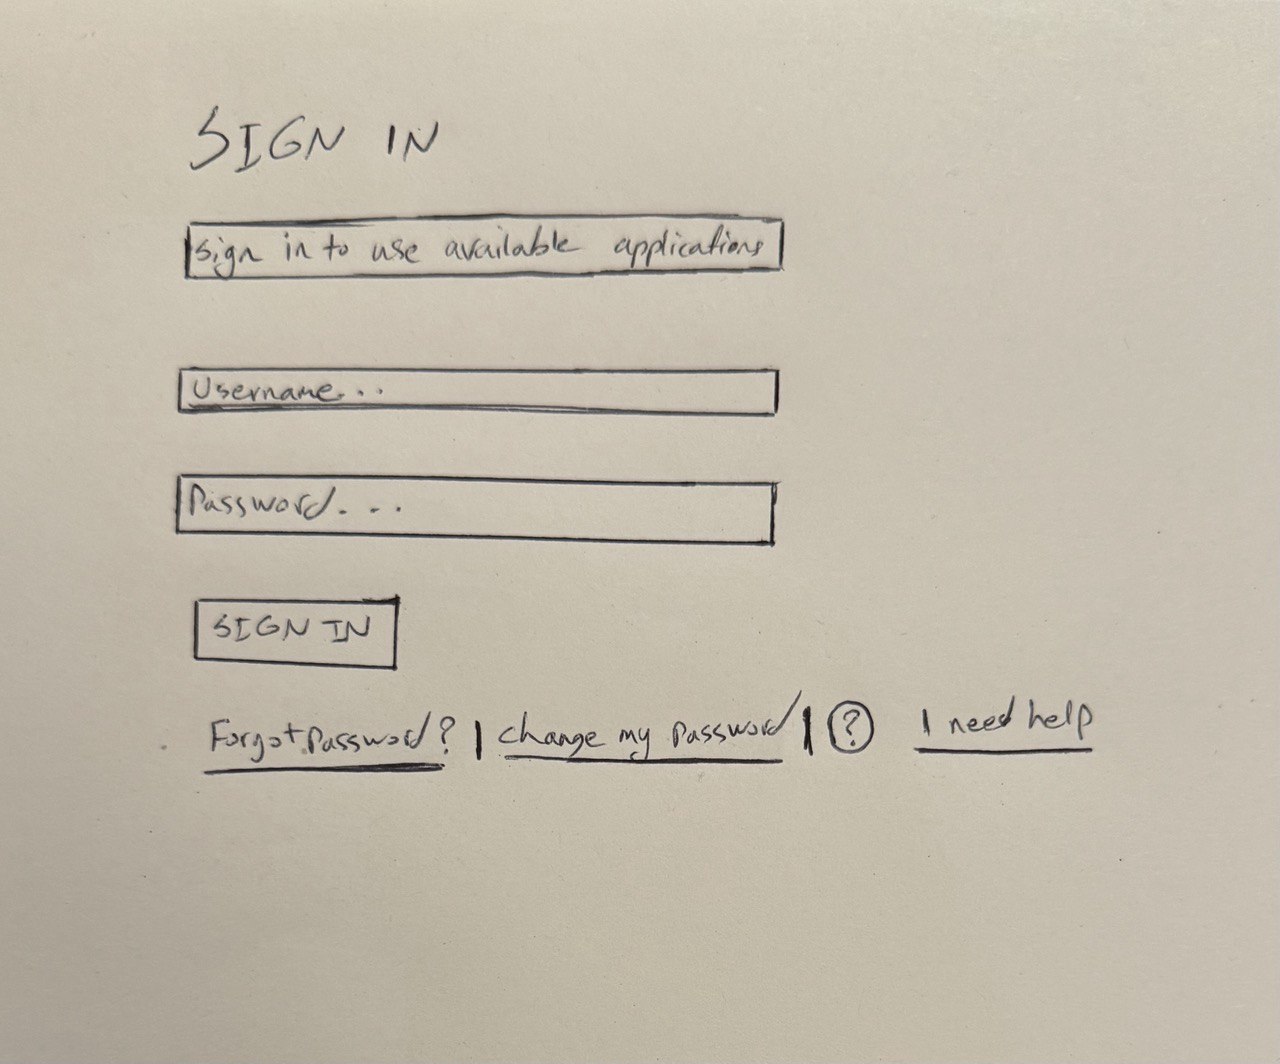 SIGN IN
Sign in to use available applications
Username...
Password...
SIGN IN
Forgot Password? | change my password | ? I need help